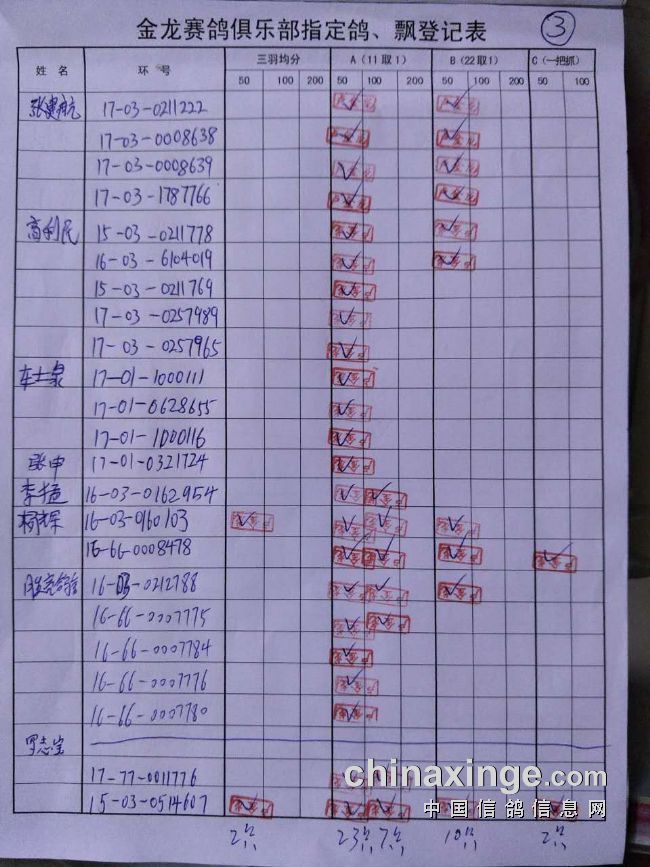 金龙赛鸽俱乐部指定鸽、飘登记表 ③
姓名 环号 三羽均分 A(11取1) B(22取1) C(一把抓)
50 100 200 50 100 200 50 100 200 50 100
17-03-0211222
17-03-0008638
17-03-0008639
17-03-1787766
高利民 15-03-0211778
16-03-6104019
15-03-0211769
17-03-0257989
17-03-0257965
17-01-1000111
17-01-0628655
17-01-1000116
17-01-0321724
16-03-0162954
杨辉 16-03-0160103
16-66-0008478
16-03-0212788
16-66-0007775
16-66-0007784
16-66-0007776
16-66-0007780
罗志宝
17-77-0011776
15-03-0514607
chinaxinge.com
中国信鸽信息网
2 23 7 10 2